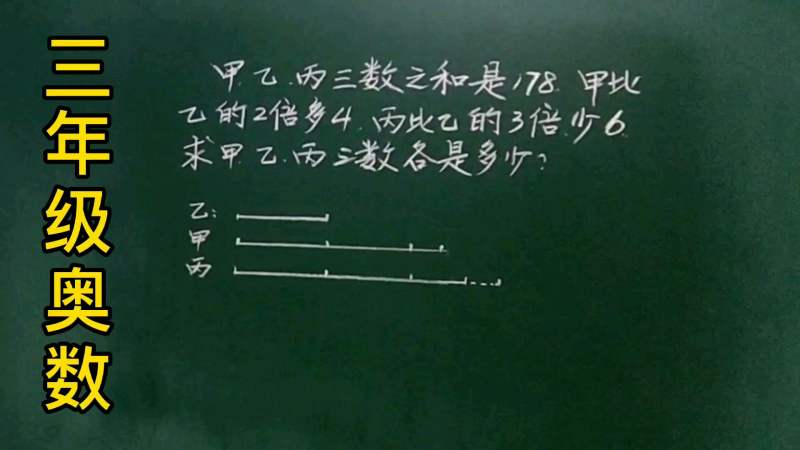 三年级奥数
甲.乙.丙三数之和是178.甲比
乙的2倍多4.丙比乙的3倍少6.
求甲.乙.丙三数各是多少?
乙:
甲
丙